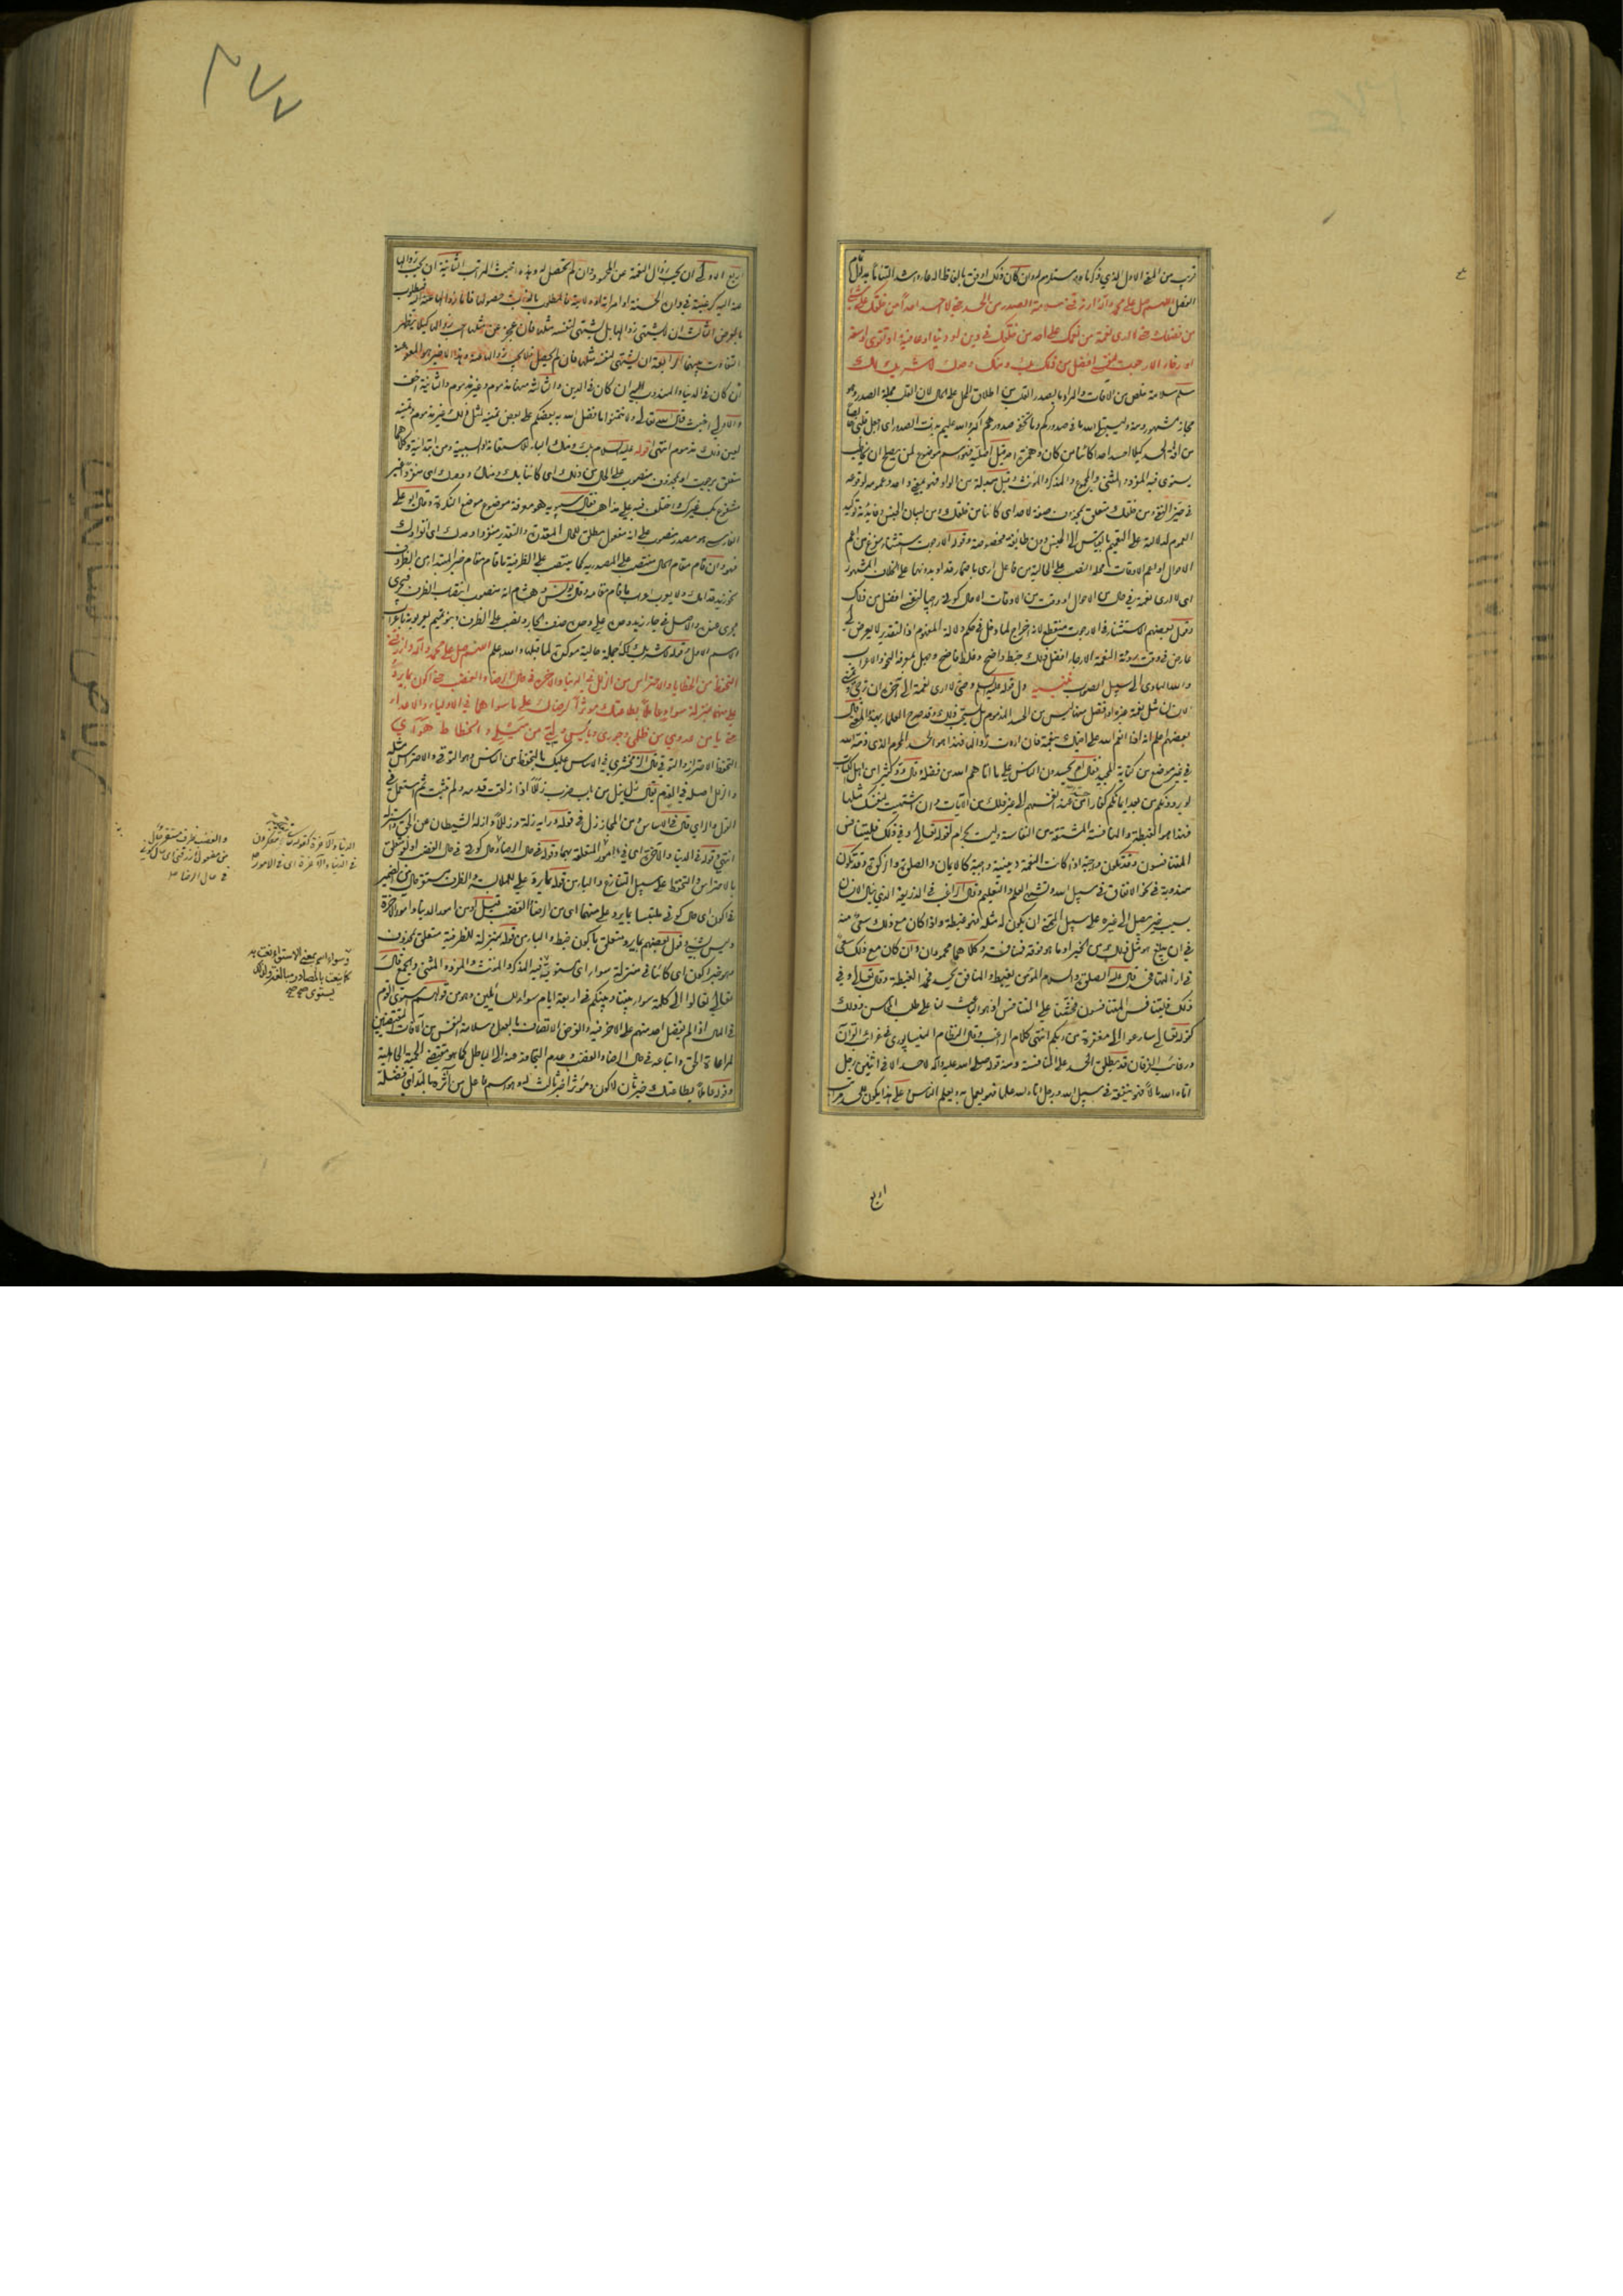 قريب من المعنى الاول الذي ذكرناه ومستلزم له وان كان ذلك اوفق بالفاظ الدعاء واشد التئاما به قال
الفضل اللهم صل على محمد وآله وارزقني سلامة الصدر من الحسد حتى لا احسد احدا من خلقك على شيء
من فضلك وحتى لا ارى نعمة من نعمك على احد من خلقك في دين او دنيا او عافية او تقوى او سعة
او رخاء الا رجوت لنفسي افضل من ذلك بك ومنك وحدك لا شريك لك
سلم سلامة خلص من الافات والمراد بالصدر القلب من اطلاق المحل على الحال لان القلب محله الصدر وهو
مجاز مشهور ومنه وليبتلي الله ما في صدوركم وما تخفي صدورهم اكبر والله عليم بذات الصدور اى اجعل قلبي خالصا
من افة الحسد كيلا احسد احدا كائنا من كان وهمزة احد قيل اصلية فهو اسم موضوع لمن يصلح ان يخاطب
يستوي فيه المفرد والمثنى والمجموع والمذكر والمؤنث وقيل مبدلة من الواو فهو بمعنى واحد وعمومه لوقوعه
في حيز النفي ومن خلقك متعلق بمحذوف صفة لاحد اى كائنا من خلقك ومن لبيان الجنس وفائدته توكيد
العموم لدلالته على الجنس دون طائفة مخصوصة وقوله الا رجوت استثناء مفرغ من اعم
الاحوال او اعم الاوقات محله النصب على الحالية من فاعل ارى باضمار قد او بدونها على الخلاف المشهور
اى لا ارى نعمة في حال من الاحوال او وقت من الاوقات الا حال كوني راجيا لنفسي افضل من ذلك
وقول بعضهم الاستثناء في الا رجوت منقطع لانه اخراج لما دخل في حكم دلالة المفهوم اذ التقدير لا يعرض لي
عارض في وقت رؤية النعمة الا رجاء افضل فذلك خبط واضح وغلط فاضح وجهل بمعرفة النحو والاعراب
والله الهادي الى سبيل الصواب تنبيه دل قوله عليه السلم وحتى لا ارى نعمة الى آخره ان تمني
الانسان مثل نعمة غيره او افضل منها ليس من الحسد المذموم بل يستحب ذلك وقد صرح العلماء بهذا المعنى قال
بعضهم اعلم انه اذا انعم الله على اخيك بنعمة فان اردت زوالها فهذا هو الحسد المحرم الذي ذمه الله
في غير موضع من كتابه المجيد فقال ام يحسدون الناس على ما اتاهم الله من فضله وقال ود كثير من اهل الكتاب
لو يردونكم من بعد ايمانكم كفارا حسدا من عند انفسهم الى غير ذلك من الايات وان اشتهيت لنفسك مثلها
فهذا هو الغبطة والمنافسة المشتقة من النفاسة وليست بحرام لقوله تعالى وفي ذلك فليتنافس
المتنافسون وقد تكون واجبة اذا كانت النعمة دينية واجبة كالايمان والصلوة والزكوة وقد تكون
مندوبة في نحو الانفاق في سبيل الله وتشبه العلم والتعليم وقال الراغب في الذريعة الذي ينال الانسان
بسبب خير يصل الى غيره على سبيل التمني ان يكون له مثله فهو غبطة واذا كان مع ذلك سعي منه
في ان يبلغ هو مثل ذلك من الخير او ما هو فوقه فمنافسة وكلاهما محمودان وان كان مع ذلك سعي
في ازالتها فحسد قال عليه الصلوة والسلام المؤمن يغبط والمنافق يحسد فحمد الغبطة وقال تعالى وفي
ذلك فليتنافس المتنافسون فحثنا على التنافس اذ هو الباعث لنا على طلب المحاسن وذلك
كقوله تعالى سارعوا الى مغفرة من ربكم انتهى كلام الراغب وقال النظام النيسابوري في غرائب القرآن
ورغائب الفرقان قد يطلق الحسد على المنافسة ومنه قوله صلى الله عليه وآله لا حسد الا في اثنين رجل
اتاه الله مالا فهو ينفقه في سبيل الله ورجل اتاه الله علما فهو يعمل به ويعلم الناس على هذا يكون للحسد مراتب
اربع
٢٧٧
اربع الاولى ان يحب زوال النعمة عن المحسود وان لم تحصل له وهذه اخبث المراتب الثانية ان يحب زوالها
عنه اليه كرغبته في داره الحسنة او امرأته فالمطلوب بالذات حصولها فاما زوالها عنه فمطلوب
بالعرض الثالثة ان لا يشتهي زوالها بل يشتهي لنفسه مثلها فان عجز عن مثلها احب زوالها كيلا يظهر
التفاوت بينهما الرابعة ان يشتهي لنفسه مثلها فان لم يحصل فلا يحب زوالها عنه وهذا الاخير هو المعفو عنه
ان كان في الدنيا والمندوب اليه ان كان في الدين والثالثة منها مذموم وغير مذموم والثانية اخف
والاولى اخبث قال الله تعالى ولا تتمنوا ما فضل الله به بعضكم على بعض فتمنيه لمثل ذلك غير مذموم وتمنيه
لعين ذلك مذموم انتهى قوله عليه السلام بك ومنك الباء للاستعانة او السببية ومن ابتدائية وكلاهما
متعلق برجوت او بمحذوف منصوب على الحال من ذلك اى كائنا بك ومنك ووحدك اى منفردا غير
مشفوع بك غيرك واختلف فيه على مذاهب فقال سيبويه هو معرفة موضوع موضع النكرة وقال ابو علي
الفارسي هو مصدر منصوب على انه مفعول مطلق للحال المقدرة والتقدير منفردا وحدك اى انفرادك
فهو وان قام مقام الحال منتصب على المصدرية كما ينتصب على الظرفية ما قام مقام خبر المبتدا من الظروف
نحو زيد قدامك ولا يعرب اعراب ما قام مقامه وقال يونس وهشام انه منصوب انتصاب الظرف فيجرى
مجرى عنده والاصل في جاء زيد وحده على وحده حذف الجار ونصب على الظرف
الاسم الاول وقوله لا شريك لك جملة حالية مؤكدة لما قبلها والله اعلم اللهم صل على محمد وآله وارزقني
التحفظ من الخطايا والاحتراس من الزلل في الدنيا والآخرة في حال الرضا والغضب حتى اكون بما يرد
علي منهما بمنزلة سواء عاملا بطاعتك مؤثرا لرضاك على ما سواهما في الاولياء والاعداء
حتى يأمن عدوي من ظلمي وجوري وييأس وليي من ميلي وانحطاط هواي
التحفظ الاحتراز والتوقي قال الزمخشري في الاساس عليك بالتحفظ من الناس وهو التوقي والاحتراس مثله
والزلل اصله في القدم يقال زل يزل من باب ضرب زللا اذا زلقت قدمه ولم تثبت ثم استعمل في
القول والراي قال في الاساس ومن المجاز زل في قوله ورايه زلة وزللا وازله الشيطان عن الحق واستزله
انتهى قوله في الدنيا والآخرة اى في امور المتعلقة بهما وقوله في حال الرضا اى حال كوني في حال الغضب او متعلق
بالاحتراس والتحفظ على سبيل التنازع والباء من قوله بما يرد علي للملابسة والظرف مستقر حال من الضمير
في اكون اى حال كوني ملتبسا بما يرد علي منهما اى من الرضا والغضب قيل او من امور الدنيا وامور الآخرة
وليس بشيء وقول بعضهم بما يرد متعلق باكون خبط والباء من قوله بمنزلة للظرفية متعلق بمحذوف
هو خبر اكون اى كائنا في منزلة سواء اى مستوية فيه المذكر والمؤنث والمفرد والمثنى والجمع قال
تعالى تعالوا الى كلمة سواء بيننا وبينكم في اربعة ايام سواء للسائلين وهو من قولهم استوى القوم
في المال اذا لم يفضل احد منهم على الاخر فيه والغرض الاتصاف بالعدل سلامة النفس من آفات المقتضيين
لمراعاة الحق واتباعه في حال الرضا والغضب وعدم التجاوز عنه الى الباطل كما هو مقتضى الحمية الجاهلية
وقوله عاملا بطاعتك خبر ثان لاكون ومؤثرا خبر ثالث له وهو اسم فاعل من آثره بالمد اى فضله
في الدنيا والآخرة اى في الامور
والغضب ظرف مستقر
في حال الرضا
وسواء اسم بمعنى الاستواء نعت به
كما ينعت بالمصادر مبالغة
يستوى صح